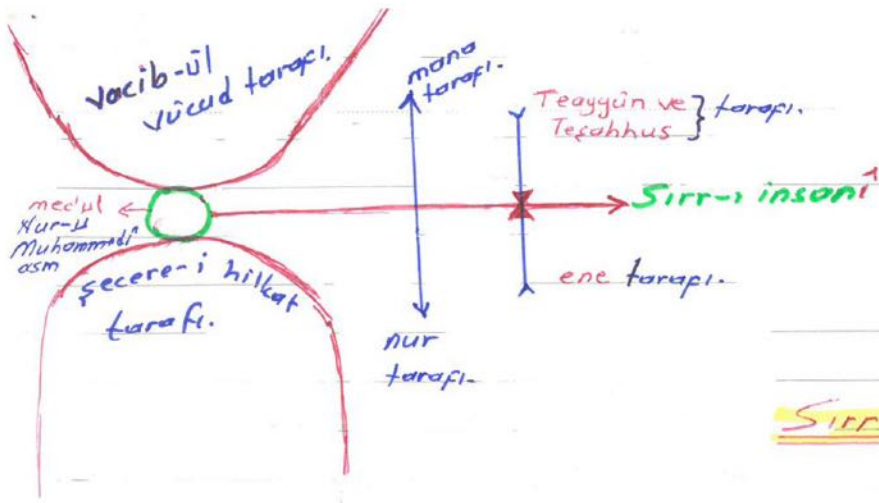 Vacib-ül
vücud tarafı.
mana
tarafı.
Teayyün ve
Teşahhus } tarafı.
mec'ul
Nur-u
Muhammedî
asm
Sırr-ı insanî
şecere-i hilkat
tarafı.
ene tarafı.
nur
tarafı.
Sırr